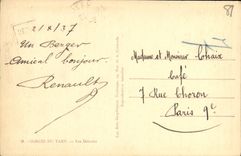 87
21/8/37
Un Berger
Amical bonjour
Renault
Madame et Monsieur Chaix
Café
7 Rue Choron
Paris 9e
GORGES DU TARN - Les Détroits